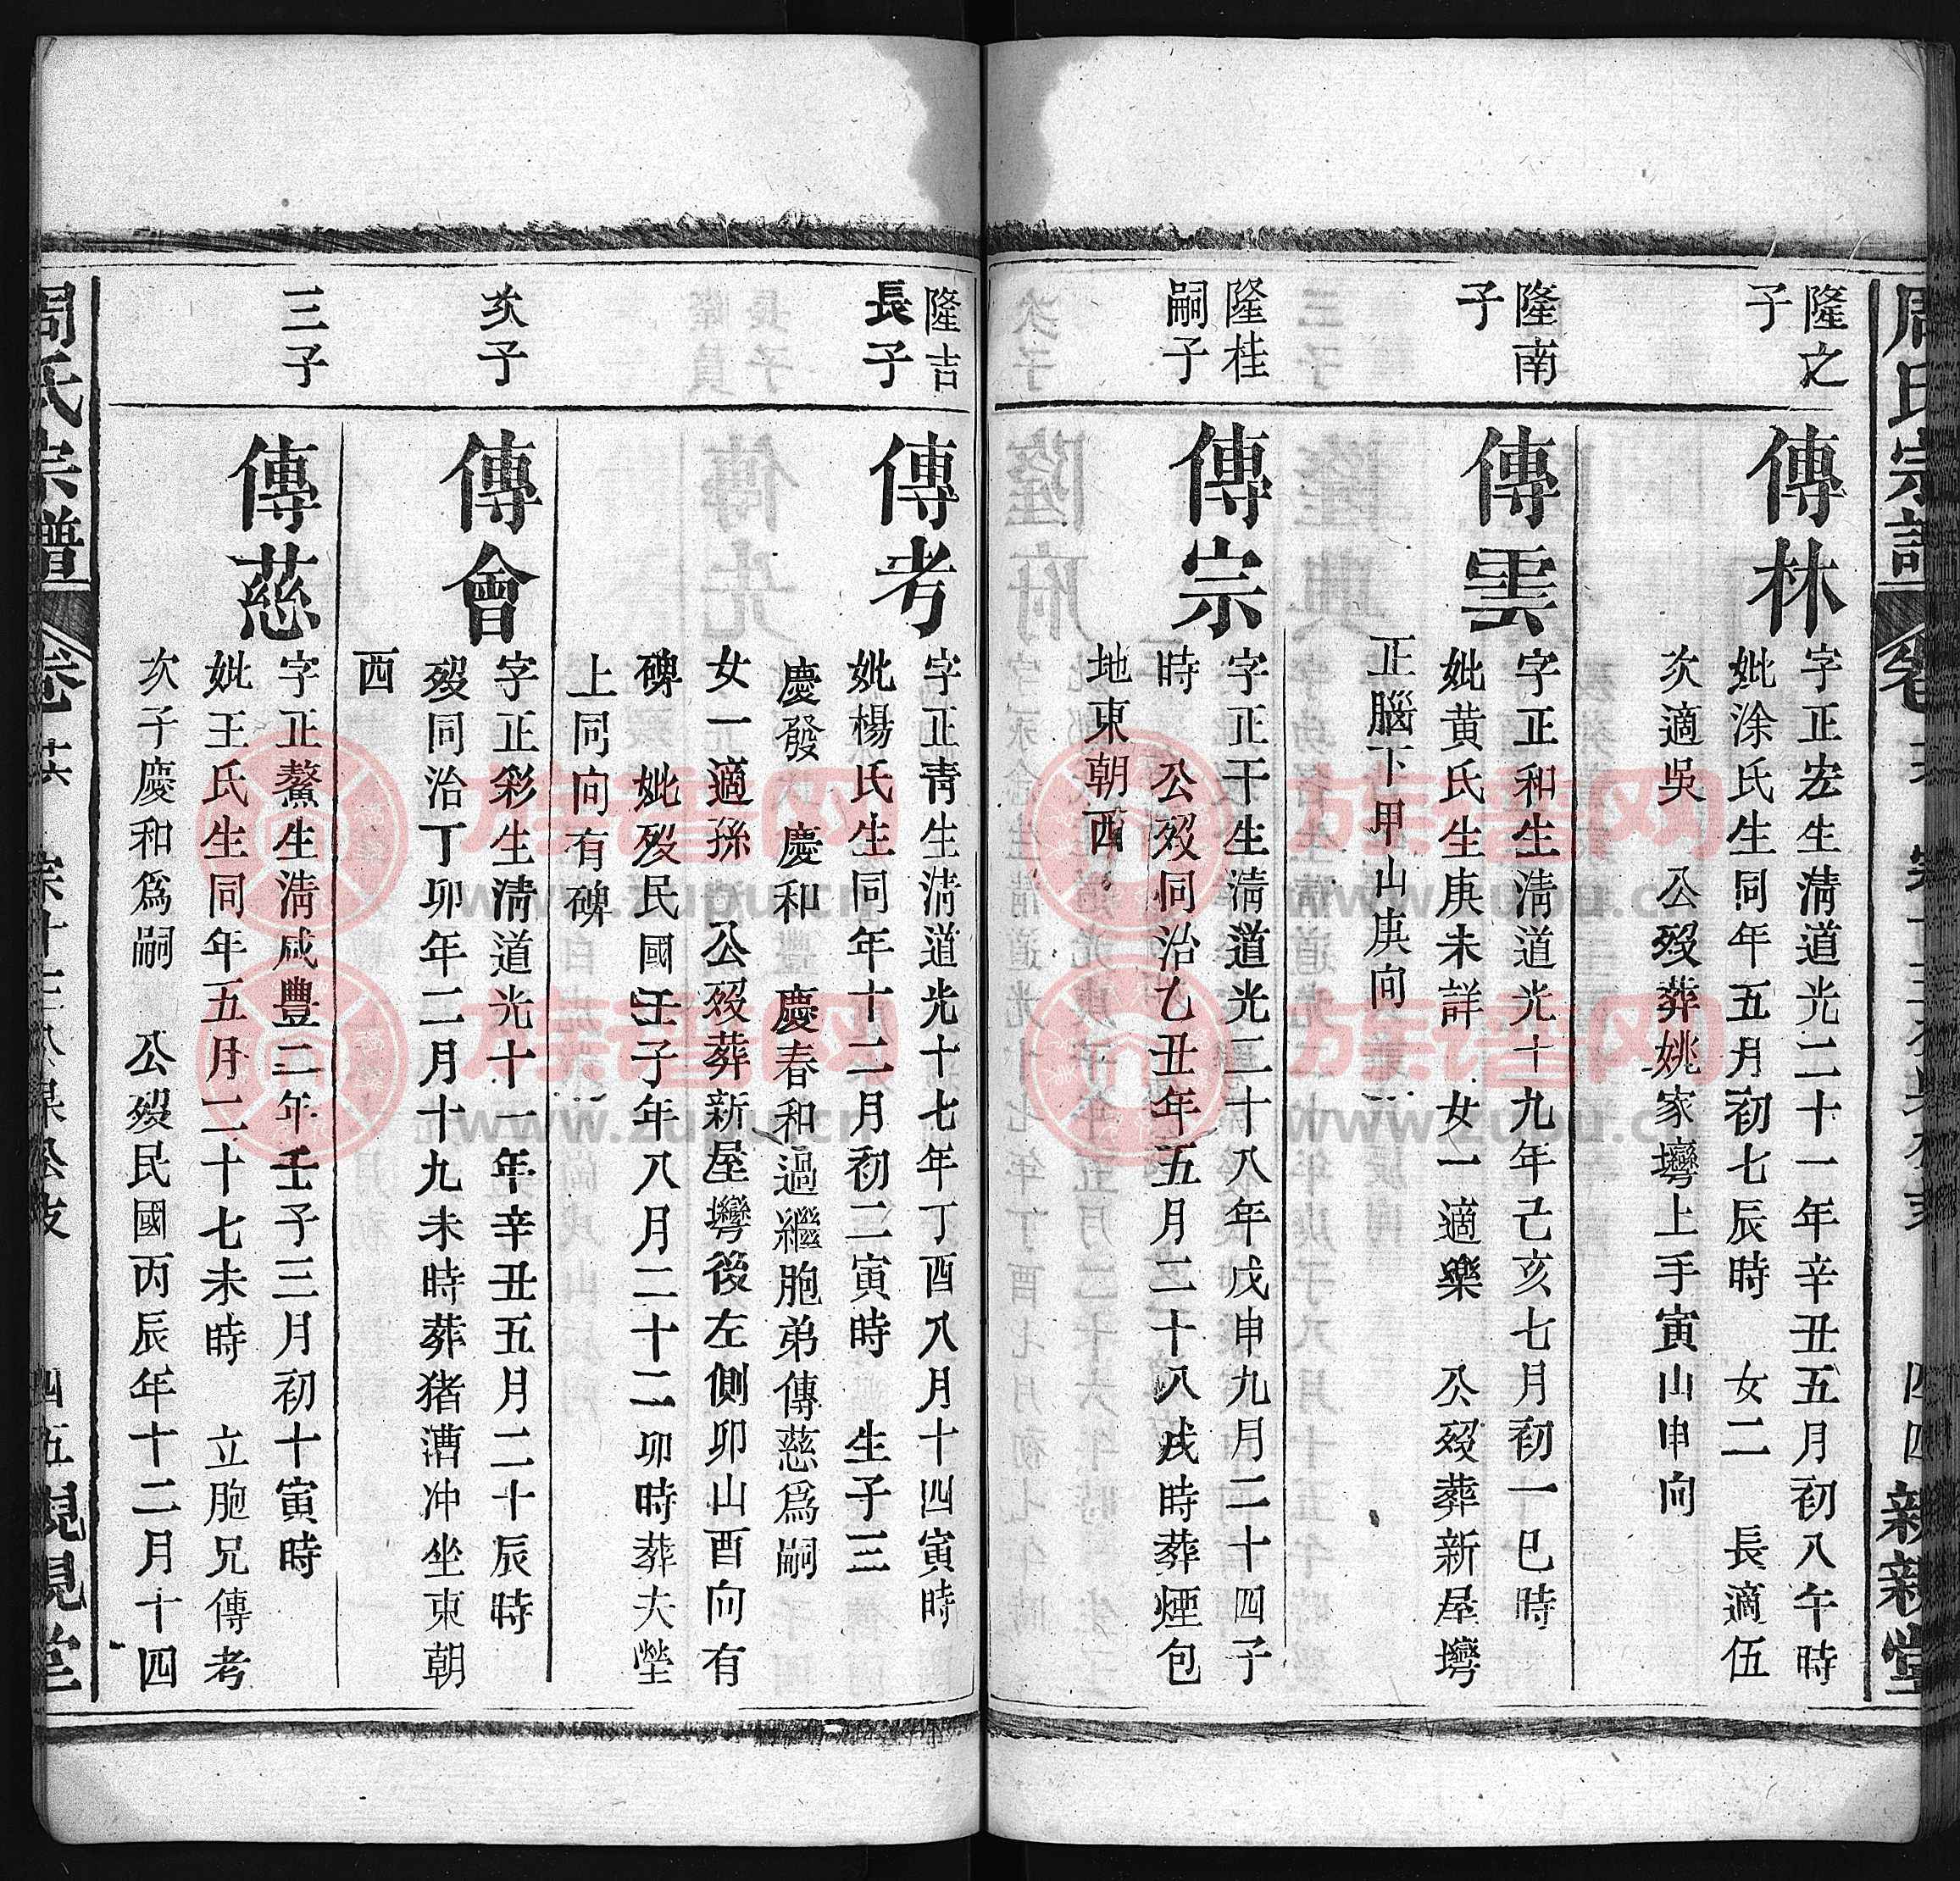 周氏宗譜
親親堂
四四
隆之
子
傳林
字正宏生清道光二十一年辛丑五月初八午時
妣涂氏生同年五月初七辰時 女二 長適伍
次適吳 公歿葬姚家壪上手寅山申向
隆南
子
傳雲
字正和生清道光十九年己亥七月初一巳時
妣黃氏生庚未詳 女一適樂 公歿葬新屋壪
正腦下甲山庚向
隆桂
嗣子
傳宗
字正干生清道光二十八年戊申九月二十四子
時 公歿同治乙丑年五月二十八戌時葬煙包
地東朝西
隆吉
長子
傳考
字正青生清道光十七年丁酉八月十四寅時
妣楊氏生同年十二月初二寅時 生子三
慶發 慶和 慶春和過繼胞弟傳慈爲嗣
女一適孫 公歿葬新屋壪後左側卯山酉向有
碑 妣歿民國壬子年八月二十二卯時葬夫塋
上同向有碑
次子
傳會
字正彩生清道光十一年辛丑五月二十辰時
歿同治丁卯年二月十九未時葬猪漕冲坐東朝
西
三子
傳慈
字正鰲生清咸豐二年壬子三月初十寅時
妣王氏生同年五月二十七未時 立胞兄傳考
次子慶和爲嗣 公歿民國丙辰年十二月十四
周氏宗譜
四五
親親堂
族譜网
www.zupu.cn
族譜网
www.zupu.cn
族譜网
www.zupu.cn
族譜网
www.zupu.cn